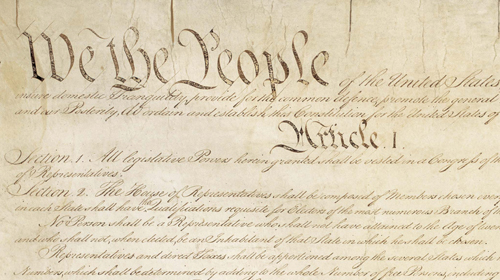 We the People of the United States
insure domestic Tranquility, provide for the common defence, promote the general
and our Posterity, do ordain and establish this Constitution for the United States of
Article. I.
Section. 1. All legislative Powers herein granted shall be vested in a Congress of
of Representatives.
Section. 2. The House of Representatives shall be composed of Members chosen every
in each State shall have the Qualifications requisite for Electors of the most numerous Branch of
No Person shall be a Representative who shall not have attained to the Age of twenty
and who shall not, when elected, be an Inhabitant of that State in which he shall be chosen.
Representatives and direct Taxes shall be apportioned among the several States which
Numbers, which shall be determined by adding to the whole Number of free Persons, including